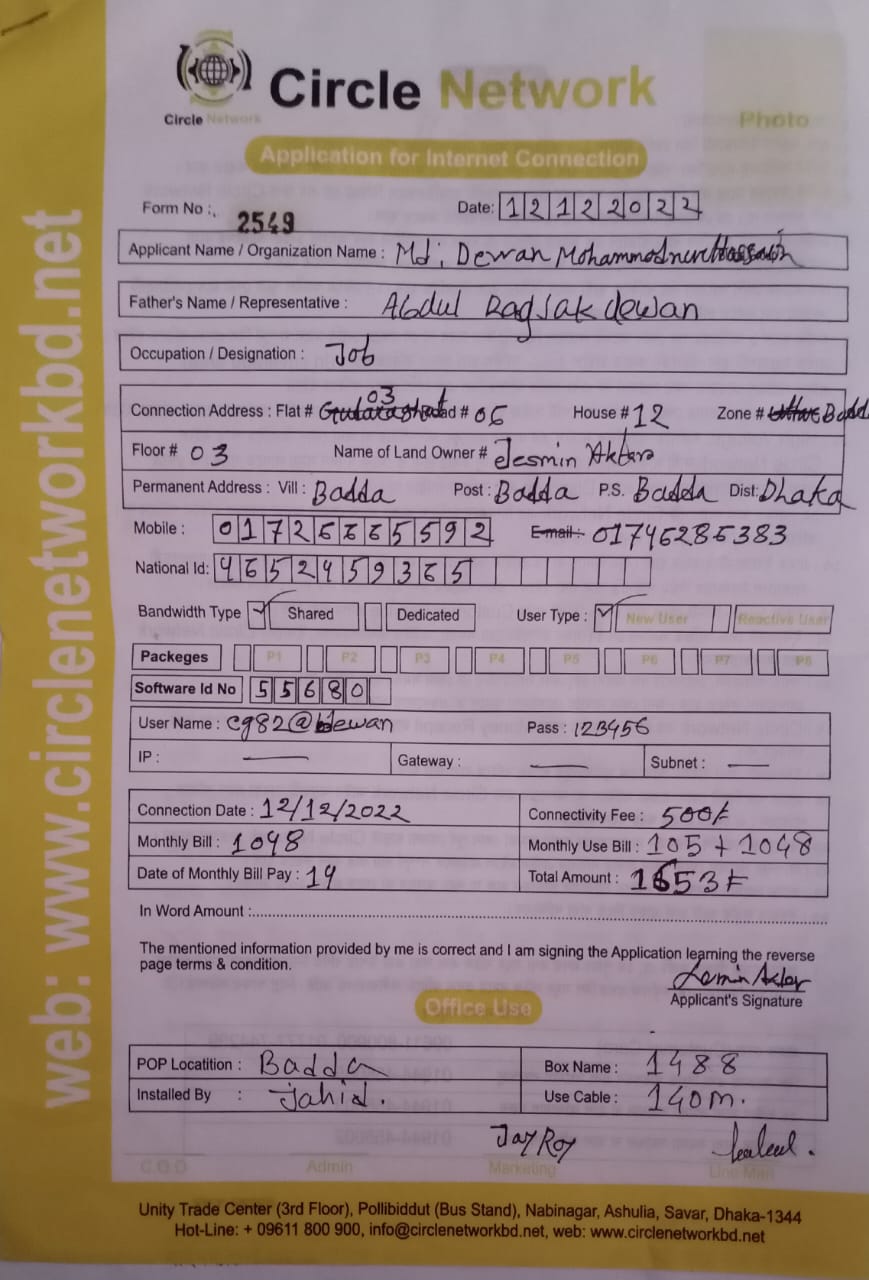 Circle Network
Circle Network
Photo
Application for Internet Connection
Form No : 2549 Date: 12122022
Applicant Name / Organization Name : Md: Dewan Mohammod
Father's Name / Representative : Abdul dewan
Occupation / Designation : Job
Connection Address : Flat # 03 Road # 05 House # 12 Zone # Badd
Floor # 03 Name of Land Owner # Jesmin Aktara
Permanent Address : Vill : Badda Post : Badda P.S. Badda Dist: Dhaka
Mobile : E-mail: 01746285383
National Id:
Bandwidth Type Shared Dedicated User Type : New User Reactive User
Packeges P1 P2 P3 P4 P5 P6 P7 P8
Software Id No 55680
User Name : Pass : 123456
IP : — Gateway : — Subnet : —
Connection Date : 12/12/2022 Connectivity Fee : 500/-
Monthly Bill : 1048 Monthly Use Bill : 105 + 1048
Date of Monthly Bill Pay : 14 Total Amount : 1653/-
In Word Amount :
The mentioned information provided by me is correct and I am signing the Application learning the reverse
page terms & condition.
Applicant's Signature
Office Use
POP Locatition : Badda Box Name : 1488
Installed By : Jahid. Use Cable : 140m.
Jay Roy
C.O.O Admin Marketing Line Man
Unity Trade Center (3rd Floor), Pollibiddut (Bus Stand), Nabinagar, Ashulia, Savar, Dhaka-1344
Hot-Line: + 09611 800 900, info@circlenetworkbd.net, web: www.circlenetworkbd.net
web: www.circlenetworkbd.net